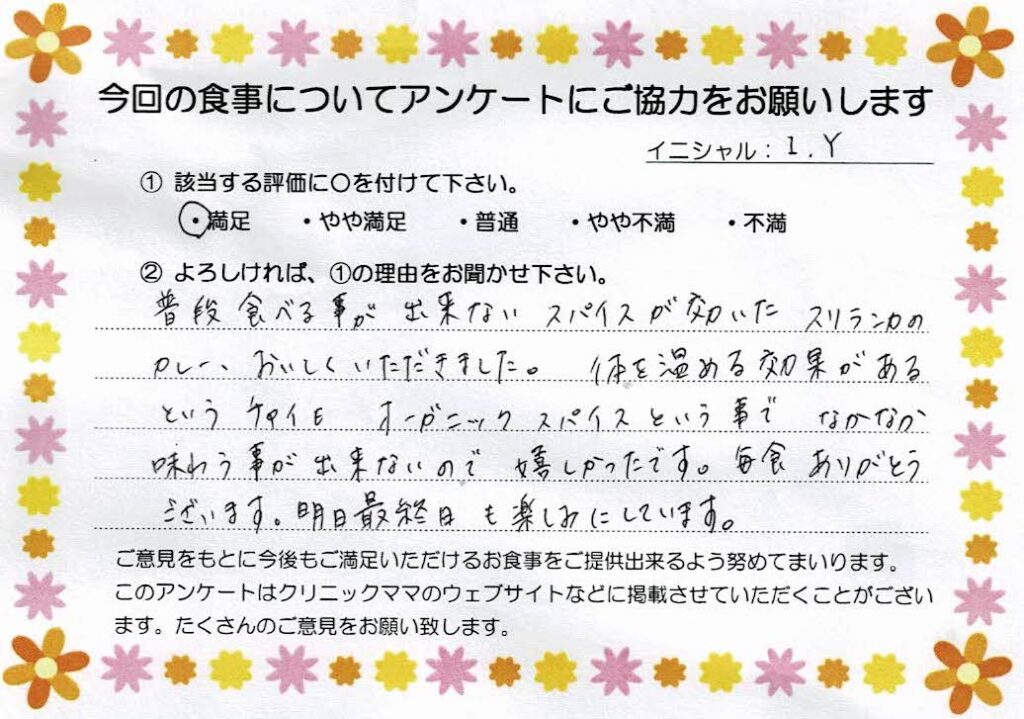 今回の食事についてアンケートにご協力をお願いします
イニシャル：I.Y
① 該当する評価に〇を付けて下さい。
・満足 ・やや満足 ・普通 ・やや不満 ・不満
② よろしければ、①の理由をお聞かせ下さい。
普段食べる事が出来ないスパイスが効いたスリランカの
カレー、おいしくいただきました。体を温める効果がある
というチャイも オーガニックスパイスという事で なかなか
味わう事が出来ないので 嬉しかったです。毎食ありがとう
ございます。明日最終日も楽しみにしています。
ご意見をもとに今後もご満足いただけるお食事をご提供出来るよう努めてまいります。
このアンケートはクリニックママのウェブサイトなどに掲載させていただくことがござい
ます。たくさんのご意見をお願い致します。